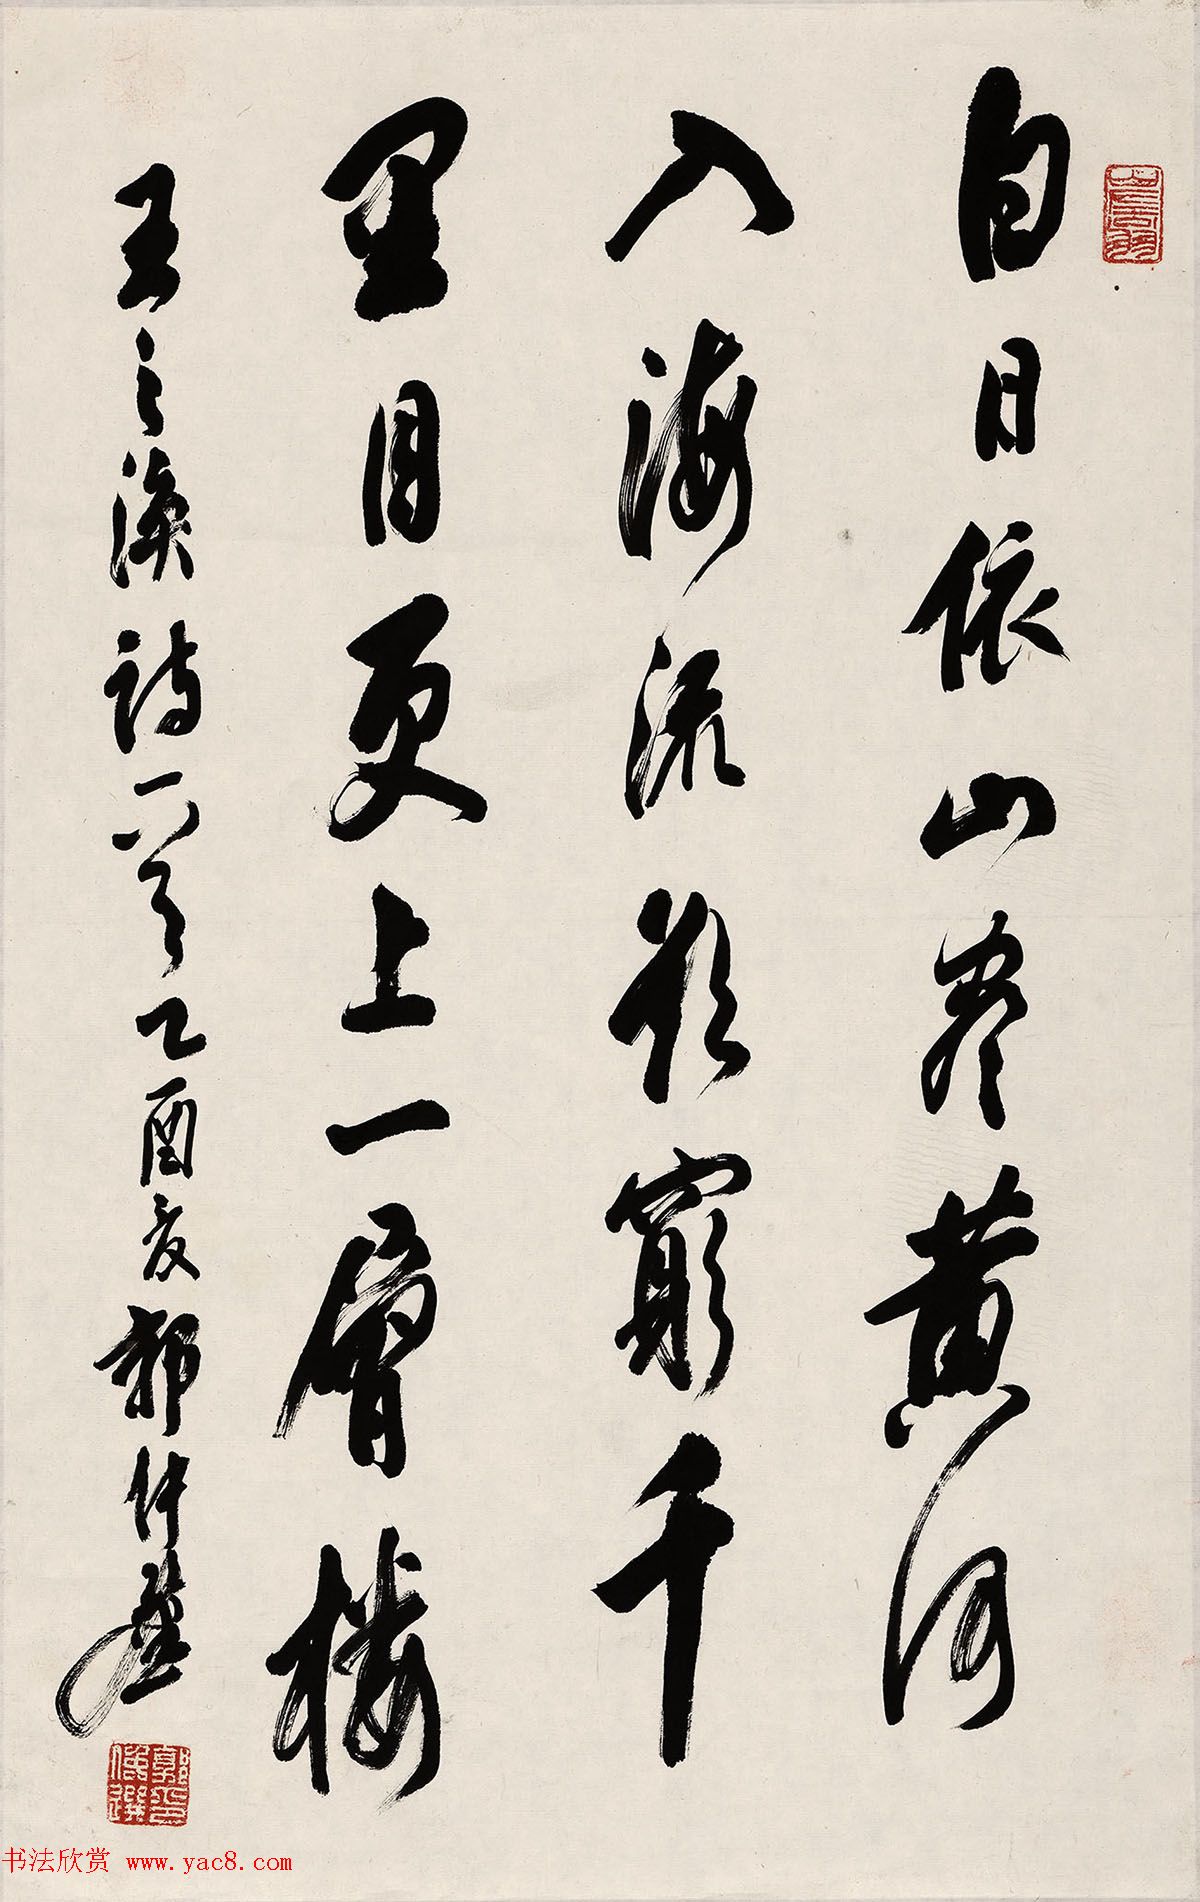 白日依山尽黄河
入海流欲窮千
里目更上一層楼
王之渙詩一首乙酉夏郭仲選
郭仲選印
书法欣赏 www.yac8.com